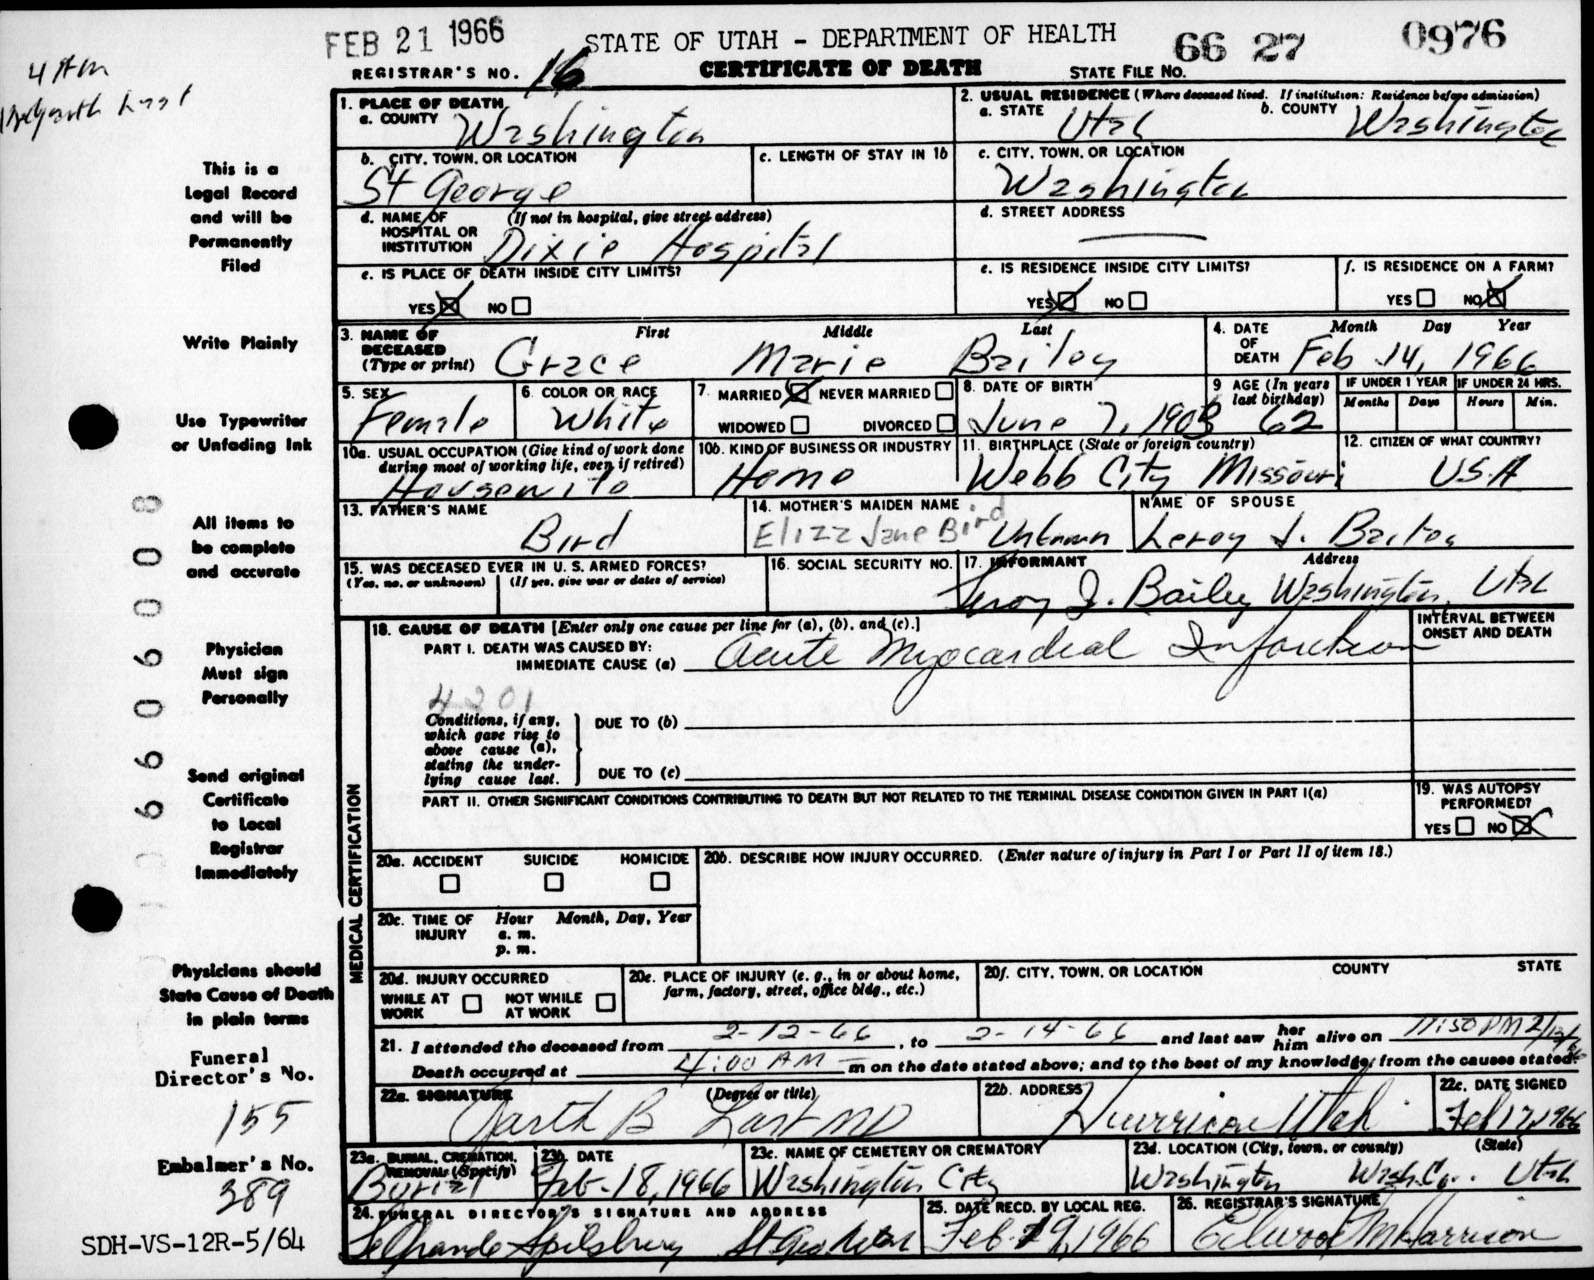 FEB 21 1966
STATE OF UTAH – DEPARTMENT OF HEALTH
66 27 0976
4 AM
REGISTRAR'S NO. 16
CERTIFICATE OF DEATH
STATE FILE NO.
1. PLACE OF DEATH
a. COUNTY Washington
2. USUAL RESIDENCE (Where deceased lived. If institution: Residence before admission)
a. STATE Utah
b. COUNTY Washington
b. CITY, TOWN, OR LOCATION
St George
c. LENGTH OF STAY IN 1b
c. CITY, TOWN, OR LOCATION
Washington
d. NAME OF HOSPITAL OR INSTITUTION (If not in hospital, give street address)
Dixie Hospital
d. STREET ADDRESS
e. IS PLACE OF DEATH INSIDE CITY LIMITS?
YES NO
e. IS RESIDENCE INSIDE CITY LIMITS?
YES NO
f. IS RESIDENCE ON A FARM?
YES NO
3. NAME OF DECEASED (Type or print)
First Middle Last
Grace Marie Bailey
4. DATE OF DEATH
Month Day Year
Feb 14, 1966
5. SEX
Female
6. COLOR OR RACE
White
7. MARRIED NEVER MARRIED
WIDOWED DIVORCED
8. DATE OF BIRTH
June 7, 1903
9 AGE (In years last birthday)
62
IF UNDER 1 YEAR
Months Days
IF UNDER 24 HRS.
Hours Min.
10a. USUAL OCCUPATION (Give kind of work done during most of working life, even if retired)
Housewife
10b. KIND OF BUSINESS OR INDUSTRY
Home
11. BIRTHPLACE (State or foreign country)
Webb City Missouri
12. CITIZEN OF WHAT COUNTRY?
USA
13. FATHER'S NAME
Bird
14. MOTHER'S MAIDEN NAME
Eliza Jane Bird Unknown
NAME OF SPOUSE
Leroy J. Bailey
15. WAS DECEASED EVER IN U.S. ARMED FORCES?
(Yes, no, or unknown) (If yes, give war or dates of service)
16. SOCIAL SECURITY NO.
17. INFORMANT Address
Leroy J. Bailey Washington, Utah
18. CAUSE OF DEATH [Enter only one cause per line for (a), (b), and (c).]
INTERVAL BETWEEN ONSET AND DEATH
PART I. DEATH WAS CAUSED BY:
IMMEDIATE CAUSE (a) Acute Myocardial Infarction
4201
Conditions, if any, which gave rise to above cause (a), stating the underlying cause last.
DUE TO (b)
DUE TO (c)
PART II. OTHER SIGNIFICANT CONDITIONS CONTRIBUTING TO DEATH BUT NOT RELATED TO THE TERMINAL DISEASE CONDITION GIVEN IN PART I(a)
19. WAS AUTOPSY PERFORMED?
YES NO
MEDICAL CERTIFICATION
20a. ACCIDENT SUICIDE HOMICIDE
20b. DESCRIBE HOW INJURY OCCURRED. (Enter nature of injury in Part I or Part II of item 18.)
20c. TIME OF INJURY
Hour Month, Day, Year
a. m.
p. m.
20d. INJURY OCCURRED
WHILE AT WORK NOT WHILE AT WORK
20e. PLACE OF INJURY (e. g., in or about home, farm, factory, street, office bldg., etc.)
20f. CITY, TOWN, OR LOCATION COUNTY STATE
21. I attended the deceased from 2-12-66, to 2-14-66 and last saw her him alive on 11:50 PM 2/13/66
Death occurred at 4:00 AM m on the date stated above; and to the best of my knowledge, from the causes stated.
22a. SIGNATURE (Degree or title)
Garth B Last MD
22b. ADDRESS
Hurricane Utah
22c. DATE SIGNED
Feb 17, 1966
23a. BURIAL, CREMATION, REMOVAL (Specify)
Burial
23b. DATE
Feb-18, 1966
23c. NAME OF CEMETERY OR CREMATORY
Washington City
23d. LOCATION (City, town, or county) (State)
Washington Wash.Co. Utah
24. FUNERAL DIRECTOR'S SIGNATURE AND ADDRESS
Spilsbury
25. DATE RECD. BY LOCAL REG.
Feb. 19, 1966
26. REGISTRAR'S SIGNATURE
Elwood M Harrison
This is a
Legal Record
and will be
Permanently
Filed
Write Plainly
Use Typewriter
or Unfading Ink
All items to
be complete
and accurate
Physician
Must sign
Personally
Send original
Certificate
to Local
Registrar
Immediately
Physicians should
State Cause of Death
in plain terms
Funeral
Director's No.
155
Embalmer's No.
389
SDH-VS-12R-5/64